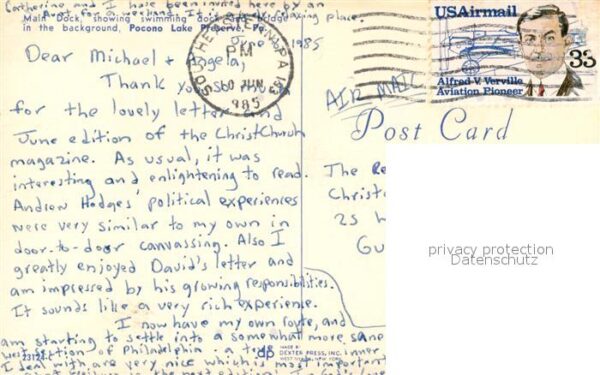 Catherine and I have been invited here by an
for a weekend. It is a very relaxing place.
Main Dock, showing swimming dock and bridge
in the background, Pocono Lake Preserve, Pa.
June 1985
Dear Michael + Angela,
Thank you so much
for the lovely letter and
June edition of the ChristChurch
magazine. As usual, it was
interesting and enlightening to read.
Andrew Hodges' political experiences
were very similar to my own in
door-to-door canvassing. Also I
greatly enjoyed David's letter and
am impressed by his growing responsibilities.
It sounds like a very rich experience.
I now have my own route, and
am starting to settle into a somewhat more sane
west section of Philadelphia - a
I deal with are very nice which is most important
23122-C
MADE BY
dp DEXTER PRESS, INC.
WEST NYACK, NEW YORK
SOUTHEASTERN PA 193
PM
JUN
1985
USAirmail
33
Alfred V. Verville
Aviation Pioneer
AIR MAIL
Post Card
The Re
Christ
25
Gu
privacy protection
Datenschutz